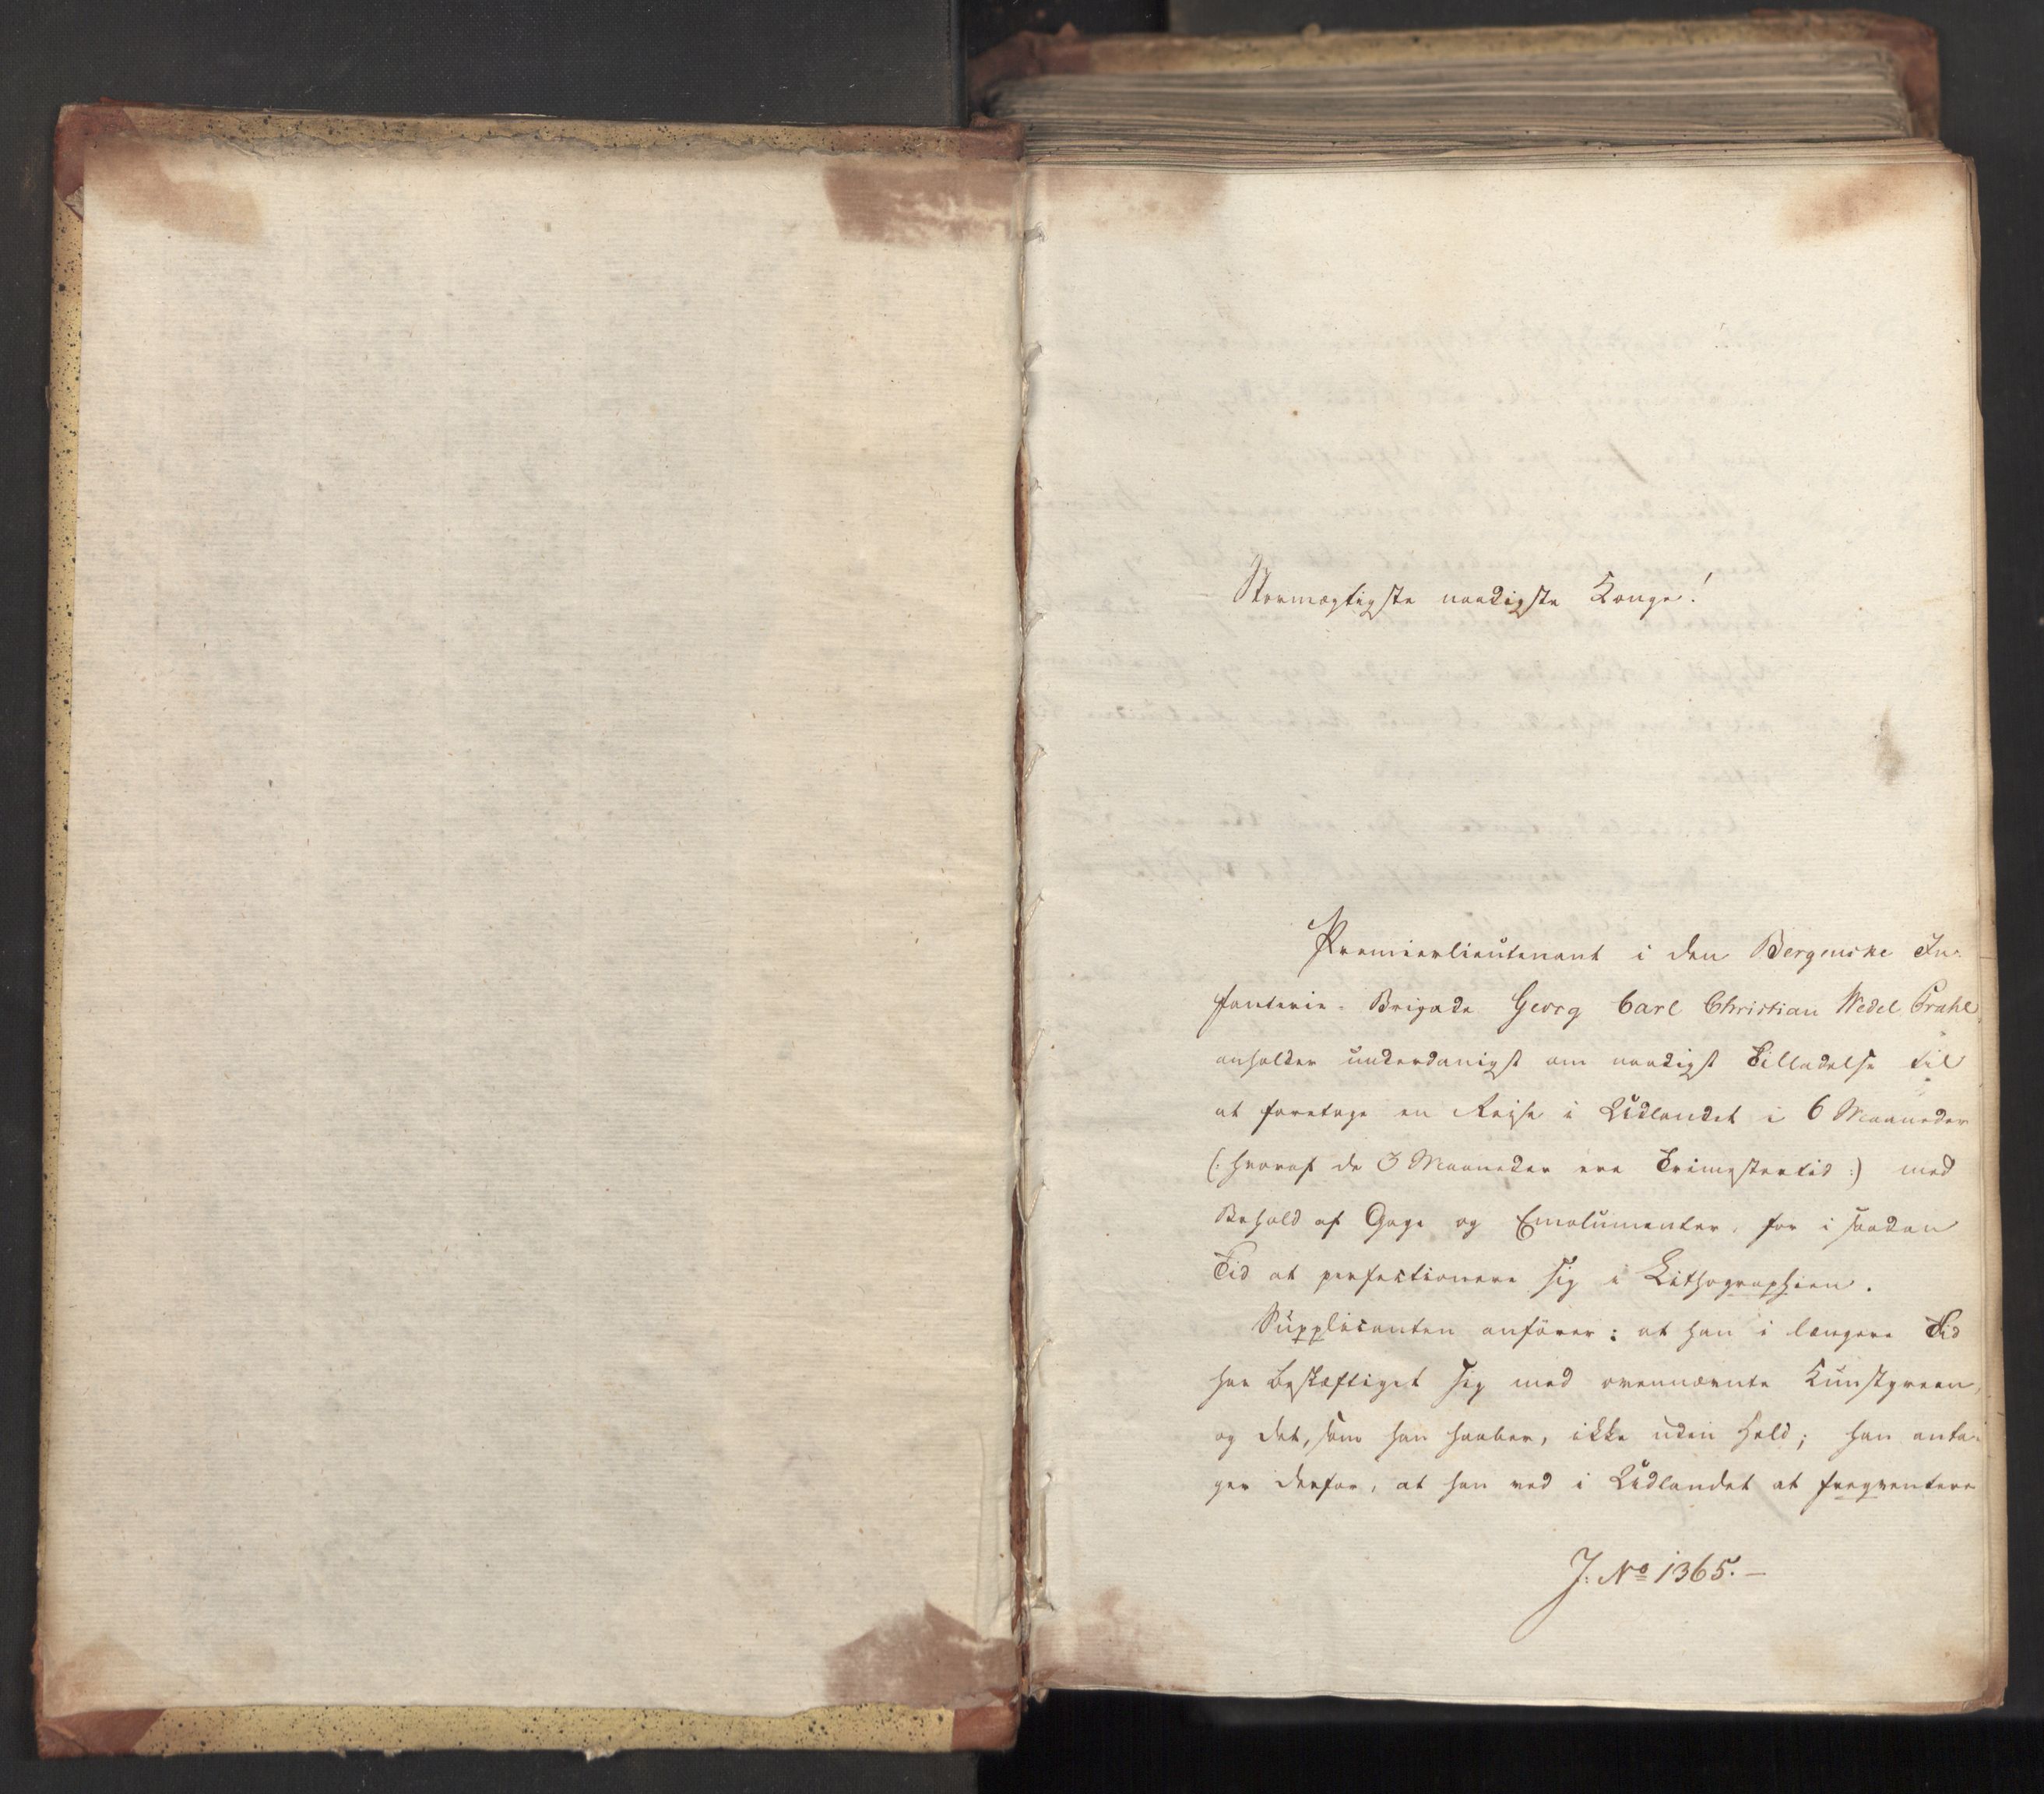 Stormægtigste naadigste Konge!
Premierlieutenant i den Bergenske In-
fanterie-Brigade Georg Carl Christian Wedel Prahl
anholder underdanigst om naadigst Tilladelse til
at foretage en Rejse i Udlandet i 6 Maaneder
(: hvoraf de 3 Maaneder ere Trimestertid :) med
Behold af Gage og Emolumenter, for i saadan
Tid at perfectionere sig i Lithographien.
Supplicanten anfører: at han i længere Tid
har beskæftiget sig med ovennævnte Kunstgreen,
og det, som han haaber, ikke uden Held; han anta-
ger derfor, at han ved i Udlandet at freqventere
J: No 1365. —